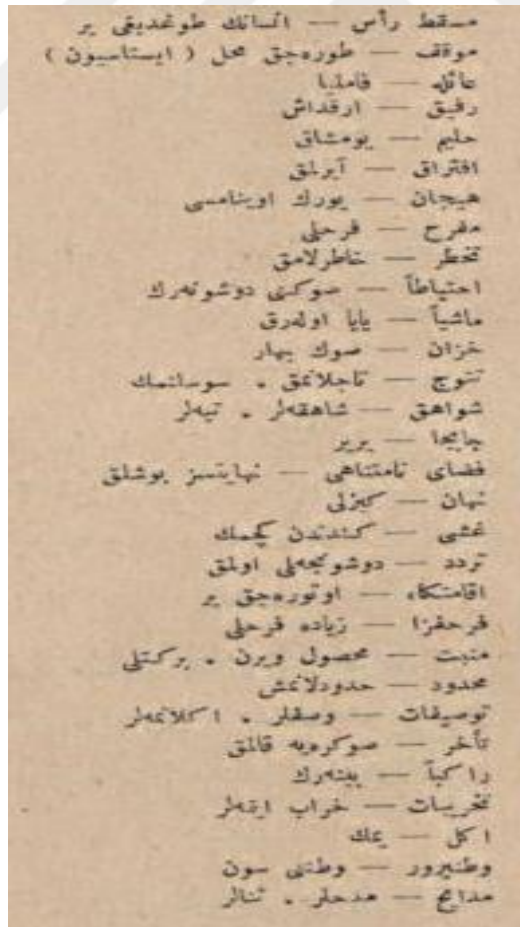 مسقط رأس — انسانك طوغديغى ير
موقف — طوره‌جق محل ( ايستاسيون )
عائله — فاميليا
رفيق — ارقداش
حليم — يومشاق
افتراق — آيرلمق
هيجان — يورك اوينامسى
مفرح — فرحلى
تخطر — خاطرلامق
احتياطاً — صوكنى دوشونه‌رك
ماشياً — يايا اوله‌رق
خزان — صوك بهار
تتوج — تاجلانمق . سوسلنمك
شواهق — شاهقه‌لر . تپه‌لر
جابجا — يرير
فضاى نامتناهى — نهايتسز بوشلق
نهان — كيزلى
غشى — كندندن كچمك
تردد — دوشونجه‌لى اولمق
اقامتكاه — اوتوره‌جق ير
فرحفزا — زياده فرحلى
منبت — محصول ويرن . بركتلى
محدود — حدودلانمش
توصيفات — وصفلر . اكلاتمه‌لر
تأخر — صوكره‌يه قالمق
راكباً — بينه‌رك
تخريبات — خراب ايتمه‌لر
اكل — يمك
وطنپرور — وطننى سون
مدايح — مدحلر . ثنالر